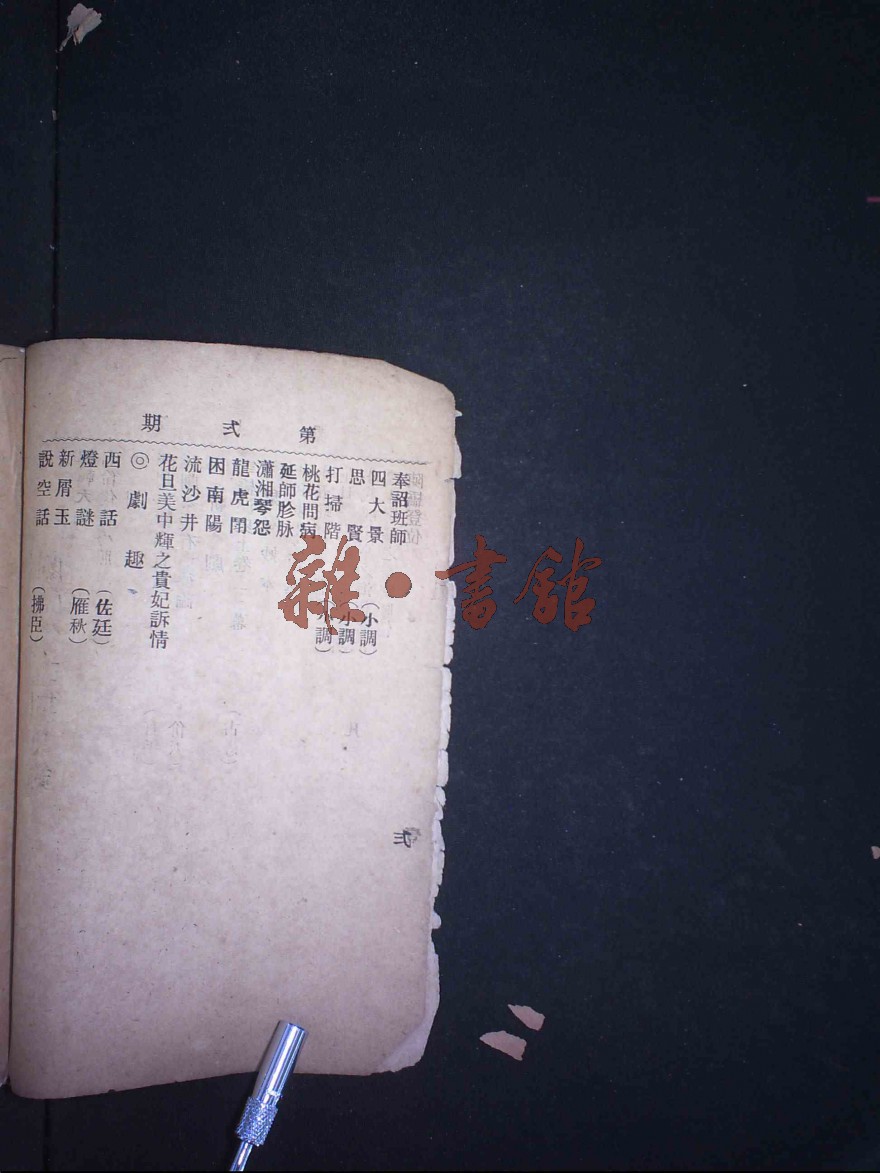 第弍期
奉詔班師
四大景（小調）
思賢（小調）
打掃階（小調）
桃花問病
延師胗脉
瀟湘琴怨
龍虎鬧
困南陽
流沙井
花旦美中輝之貴妃訴情
◎劇趣
西話（佐廷）
燈謎（雁秋）
新屑玉
說空話（拂臣）
雜·書館